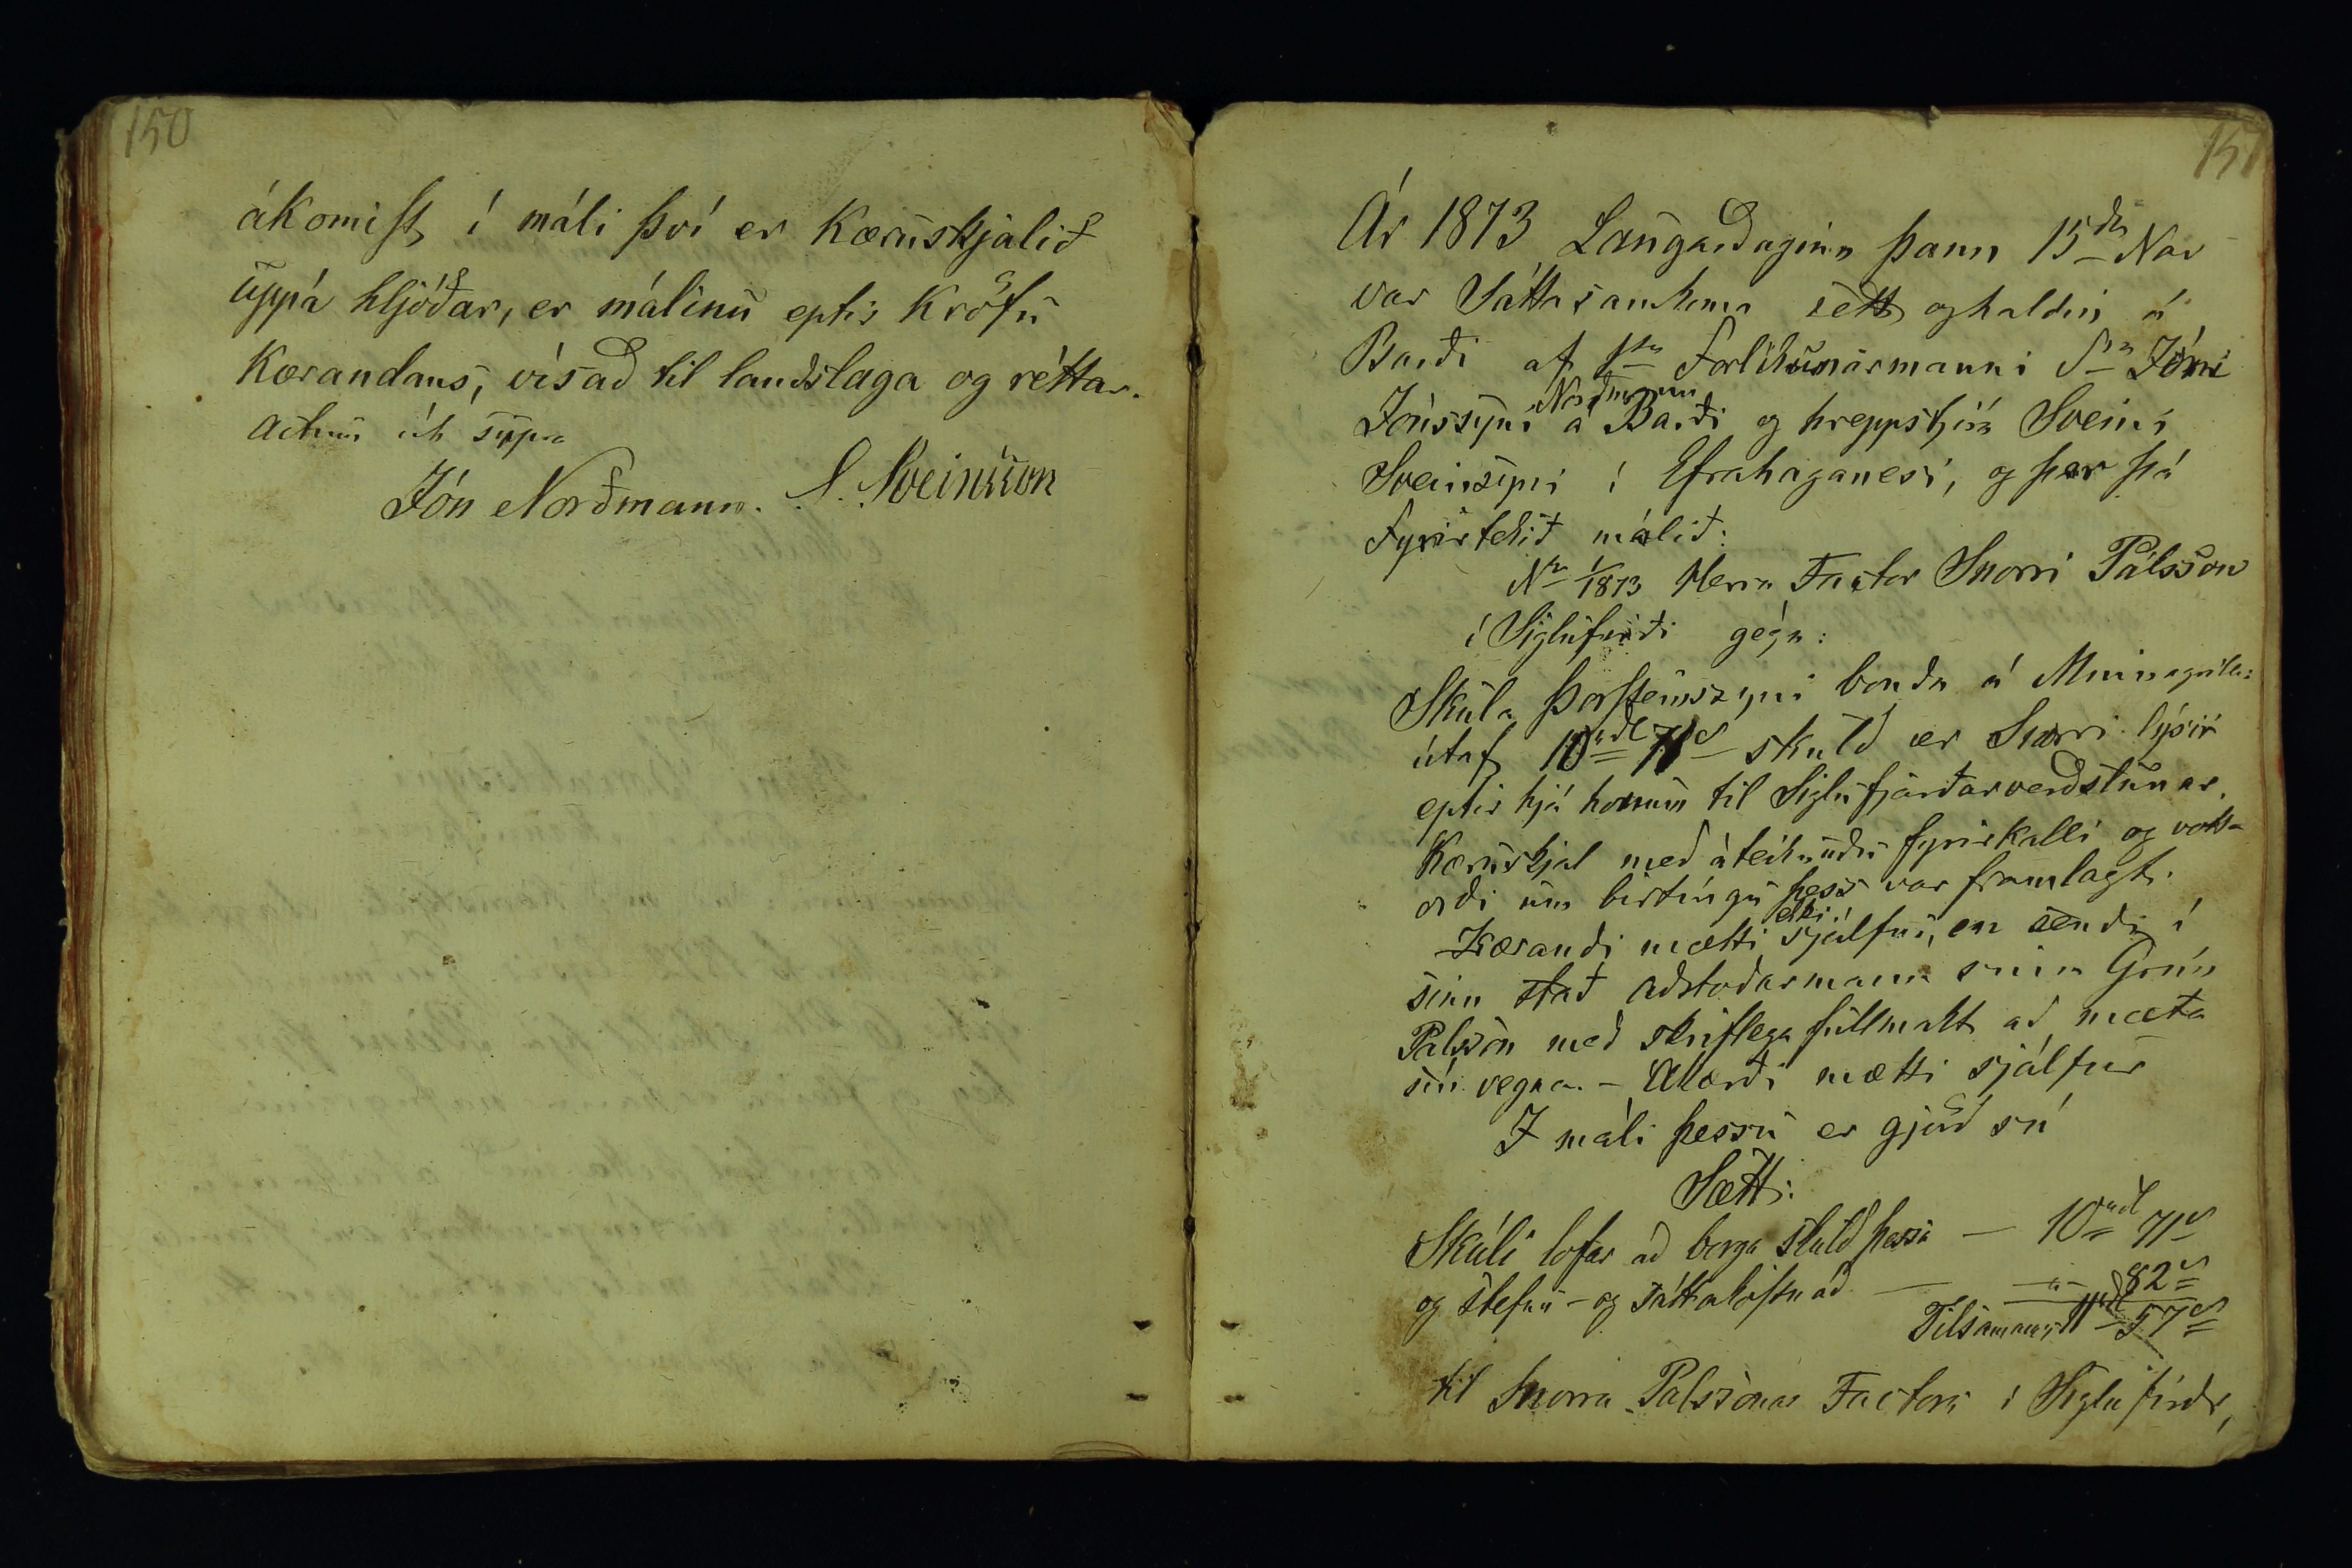 150
ákomist í máli því er kæruskjalið
uppá hljóðar, er málinu eptir kröfu
kærandans, vísað til landslaga og réttar.
Actum út supra
Jón Norðmann. S. Sveinsson
151
Ár 1873 Laugardaginn þann 15da Nov
var Sáttasamkoma sett og haldin á
Barði af Forlíkunarmanni Sra Jóni
Norðmann
Jónssyni á Barði og hreppstjóra Sveini
Sveinssyni í Efrahaganesi, og þar þá
Fyrirtekið málið:
No 1/1873 Herra Factor Snorri Pálsson
í Siglufirði gégn:
Skúla Þorsteinssyni bonda á
útaf 10rdl 71s skuld er Snorri lýsir
eptir hjá honum til Siglufjarðarverdslunar.
Kæruskjal með áteiknuðu fyrirkalli og vott-
orði um birtíngu þess var framlagt.
ekki
Kærandi mætti sjálfur, en sendi í
sinn stað aðstoðarmann sinn
Palsson með skriflega fullmakt að mæta
sín vegna. – Ákærði mætti sjálfur
I máli þessu er gjörð sú
Sætt:
Skúli lofar að borga skuld þessa — 10rdl 71s
og stefnu- og sáttakostnað — — " — 82s
Tilsamans 11rdl 57s
til Snorra Palssonar Factors í Siglufirði,